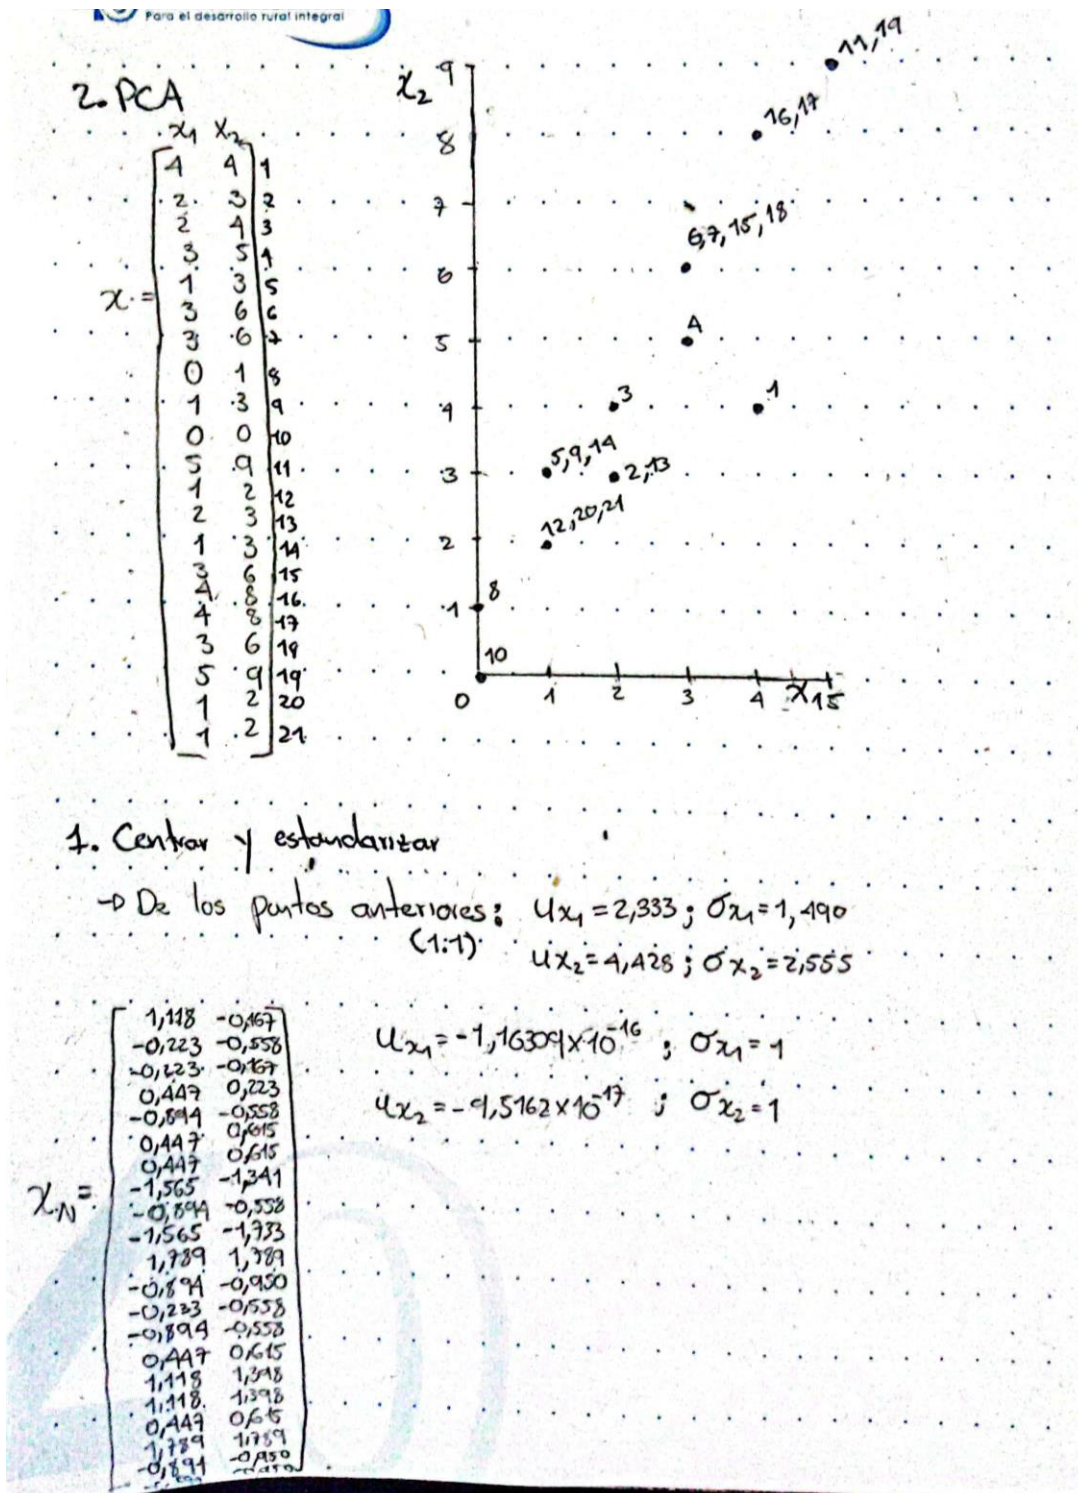 Para el desarrollo rural integral
2. PCA
x₁ x₂
4 4 1
2 3 2
2 4 3
3 5 4
x = 1 3 5
3 6 6
3 6 7
0 1 8
1 3 9
0 0 10
5 9 11
1 2 12
2 3 13
1 3 14
3 6 15
4 8 16
4 8 17
3 6 18
5 9 19
1 2 20
1 2 21
x₂ 9
8
7
6
5
4
3
2
1
0 1 2 3 4 x₁ 5
11,19
16,17
6,7,15,18
4
3
1
5,9,14
2,13
12,20,21
8
10
1. Centrar y estandarizar
→ De los puntos anteriores: ux₁ = 2,333 ; σx₁ = 1,490
(1:1) ux₂ = 4,428 ; σx₂ = 2,555
1,118 -0,167
-0,223 -0,558
-0,223 -0,167
0,447 0,223
-0,894 -0,558
0,447 0,615
0,447 0,615
-1,565 -1,341
xN = -0,894 -0,558
-1,565 -1,733
1,789 1,789
-0,894 -0,950
-0,233 -0,558
-0,894 -0,558
0,447 0,615
1,118 1,398
1,118 1,398
0,447 0,615
1,789 1,789
-0,894 -0,950
ux₁ = -1,16309x10⁻¹⁶ ; σx₁ = 1
ux₂ = -9,5162x10⁻¹⁷ ; σx₂ = 1